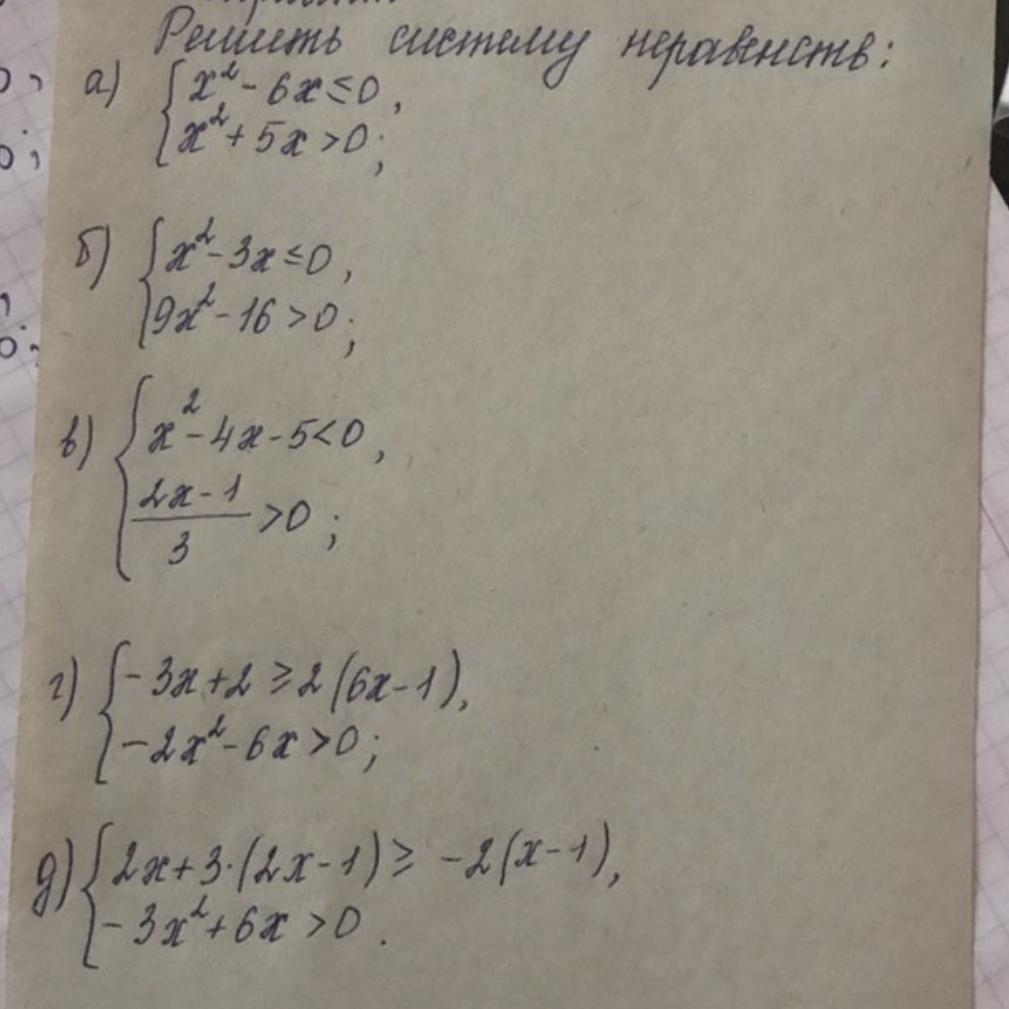 Решить систему неравенств:
а) { x² - 6x ≤ 0,
x² + 5x > 0;
б) { x² - 3x ≤ 0,
9x² - 16 > 0;
в) { x² - 4x - 5 < 0,
2x - 1
3
> 0;
г) { - 3x + 2 ≥ 2(6x - 1),
- 2x² - 6x > 0;
д) { 2x + 3·(2x - 1) ≥ -2(x - 1),
- 3x² + 6x > 0.